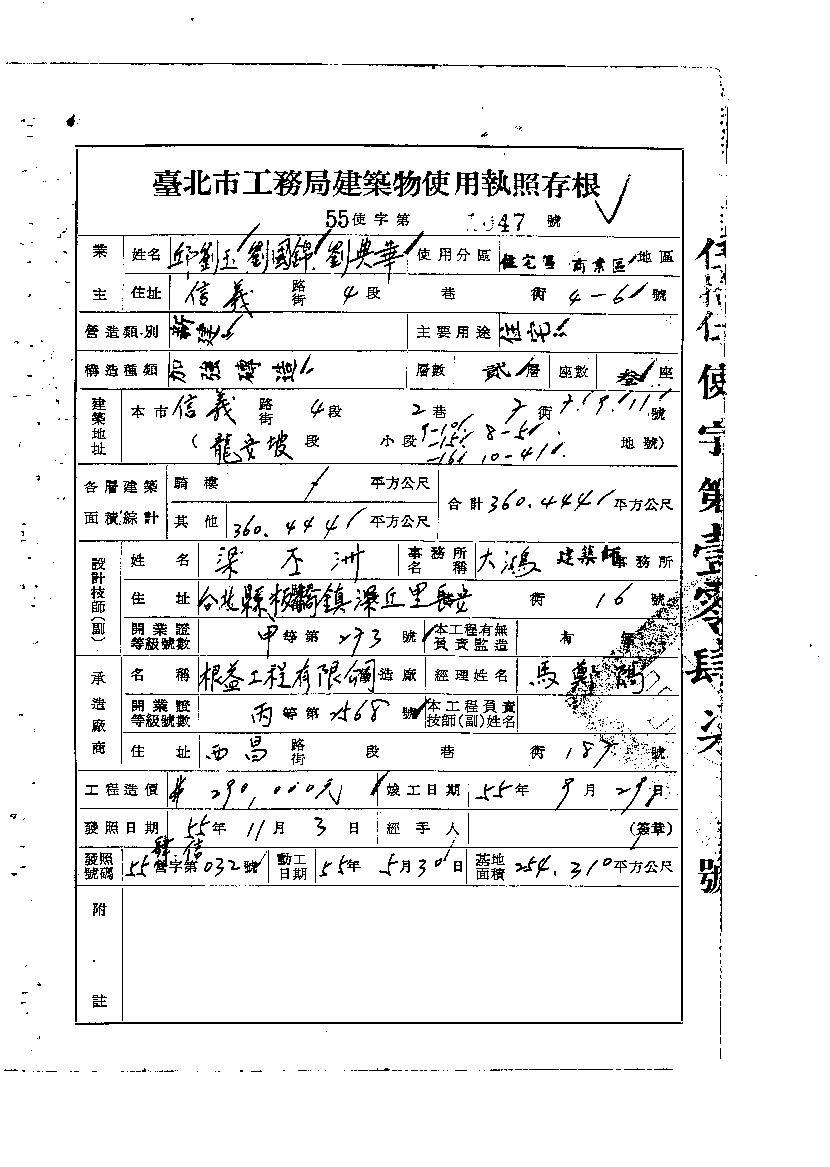 臺北市工務局建築物使用執照存根
55使字第 1047 號
業主 姓名 邱劉玉 劉國錦 劉典華 使用分區 住宅區 商業區 地區
住址 信義 路街 4段 巷 街 4-6 號
營造類別 新建 主要用途 住宅
構造種類 加強磚造 層數 貳層 座數 叁座
建築地址 本市 信義 路街 4段 2巷 7街 7.9.11號
(龍安坡段 小段 9-10 -15 -16 8-5 10-41 地號)
各層建築面積綜計 騎樓 / 平方公尺 合計 360.444 平方公尺
其他 360.444 平方公尺
設計技師(副) 姓名 梁丕洲 事務所名稱 大鴻建築師事務所
住址 台北縣板橋鎮深丘里長安街 16 號
開業證等級號數 甲等第 273 號 本工程有無負責監造 有 無
承造廠商 名稱 根益工程有限公司 造廠 經理姓名 馬鄭
開業證等級號數 丙等第 2568 號 本工程負責技師(副)姓名
住址 西昌 路街 段 巷 街 187 號
工程造價 # 290,000元 竣工日期 55年 9月 29日
發照日期 55年 11月 3日 經手人 (簽章)
發照號碼 55 營字第 032 號 動工日期 55年 5月30日 基地面積 254.310 平方公尺
附註
使字第壹零肆柒號